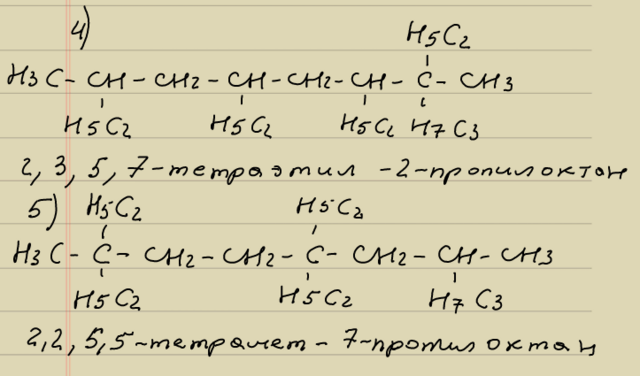 4)
H5C2
H3C - CH - CH2 - CH - CH2 - CH - C - CH3
H5C2 H5C2 H5C2 H7C3
2, 3, 5, 7-тетраэтил -2-пропилоктан
5) H5C2 H5C2
H3C - C - CH2 - CH2 - C - CH2 - CH - CH3
H5C2 H5C2 H7C3
2,2, 5,5-тетрамет - 7-пропил октан